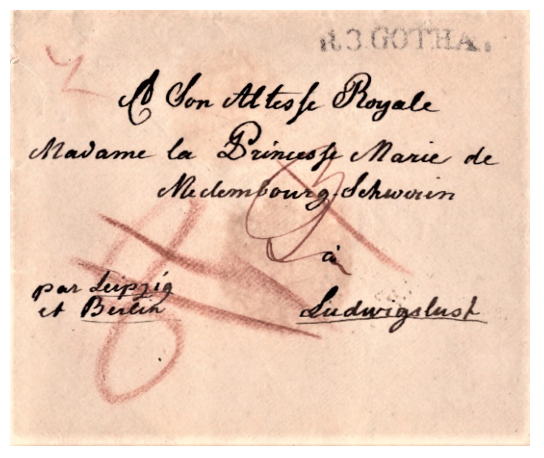 R.3.GOTHA.
A Son Altesse Royale
Madame la Princesse Marie de
Meclembourg-Schwerin
à
par Leipzig
et Berlin
Ludwigslust